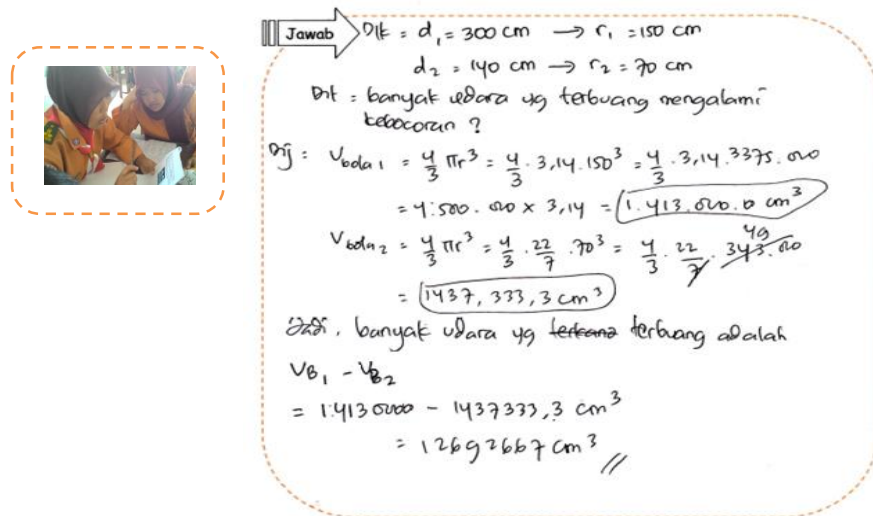 Jawab
Dik = d₁ = 300 cm → r₁ = 150 cm
d₂ = 140 cm → r₂ = 70 cm
Dit = banyak udara yg terbuang mengalami
kebocoran ?
Dij : V bola 1 = 4/3 πr³ = 4/3 . 3,14 . 150³ = 4/3 . 3,14 . 3375.000
= 4.500.000 × 3,14 = 1.413.000.0 cm³
V bola 2 = 4/3 πr³ = 4/3 . 22/7 . 70³ = 4/3 . 22/7 . 343.000 49
= 1437,333,3 cm³
Jadi, banyak udara yg terbuang adalah
VB₁ - VB₂
= 1.4130000 - 1437333,3 cm³
= 12692667 cm³ //